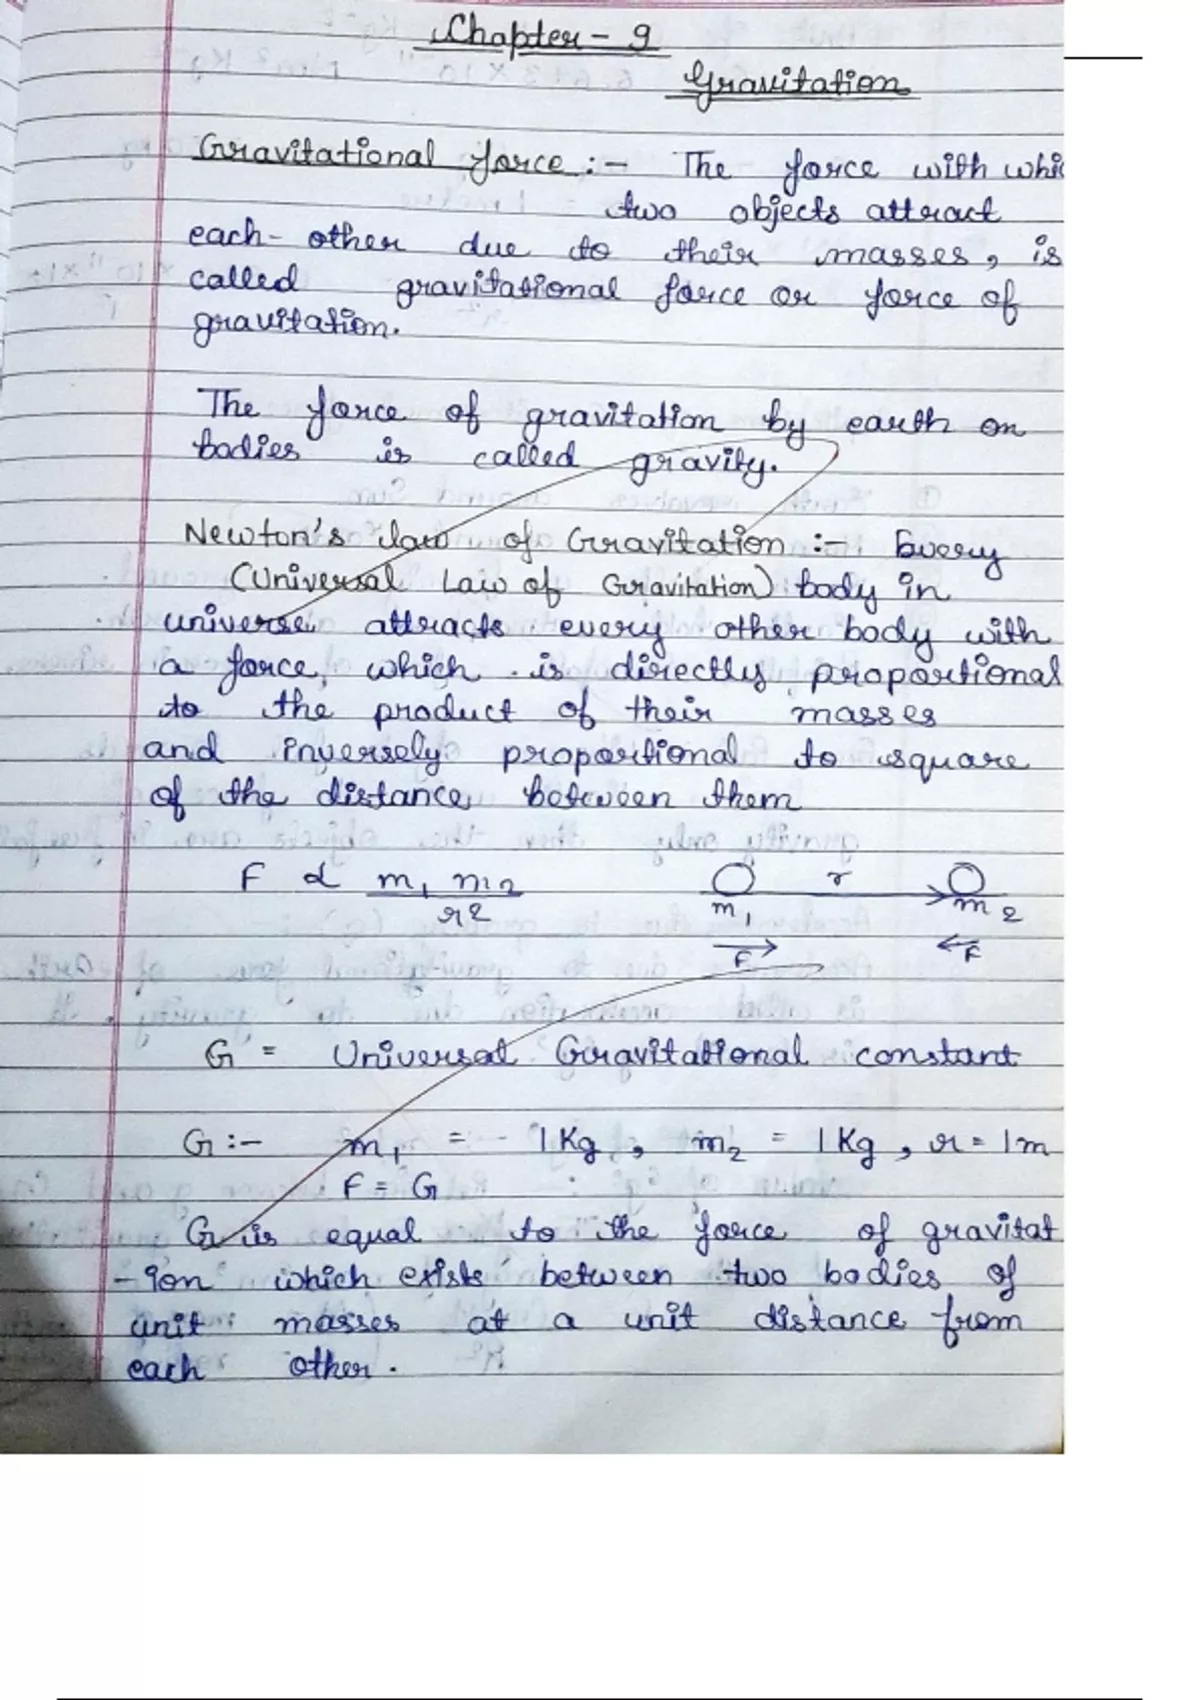 Chapter - 9
Gravitation
Gravitational force :- The force with whic
two objects attract
each-other due to their masses, is
called gravitational force or force of
gravitation.
The force of gravitation by earth on
bodies is called gravity.
Newton's law of Gravitation :- Every
(Universal Law of Gravitation) body in
universe attracts every other body with
a force, which is directly proportional
to the product of their masses
and inversely proportional to square
of the distance between them
F ∝ m₁ m₂ / r²
r
m₁ m₂
F F
G = Universal Gravitational constant
G :- m₁ = 1 Kg, m₂ = 1 Kg, r = 1m
F = G
G is equal to the force of gravitat
-ion which exists between two bodies of
unit masses at a unit distance from
each other.